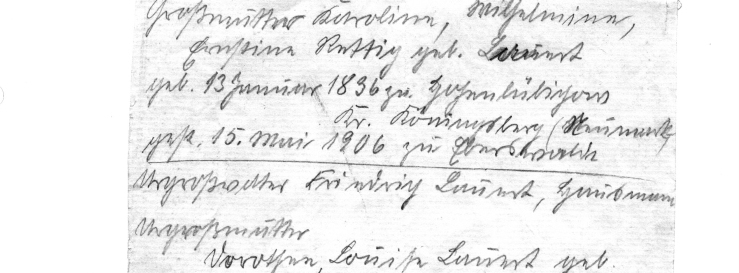 Großmutter Karoline, Wilhelmine,
Ernstine Rettig geb. Lauert
geb. 13 Januar 1836 zu Hohenlübichow
Kr. Königsberg (Neumark
gest. 15. Mai 1906 zu Eberswalde
Urgroßvater Friedrich Lauert, Hausmann
Urgroßmutter
Dorothea, Louise Lauert geb.